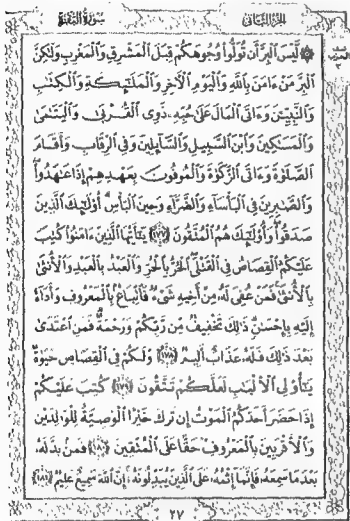 الجزء الثاني
سورة البقرة
۞ لَّيْسَ ٱلْبِرَّ أَن تُوَلُّوا۟ وُجُوهَكُمْ قِبَلَ ٱلْمَشْرِقِ وَٱلْمَغْرِبِ وَلَٰكِنَّ
ٱلْبِرَّ مَنْ ءَامَنَ بِٱللَّهِ وَٱلْيَوْمِ ٱلْءَاخِرِ وَٱلْمَلَٰٓئِكَةِ وَٱلْكِتَٰبِ
وَٱلنَّبِيِّۦنَ وَءَاتَى ٱلْمَالَ عَلَىٰ حُبِّهِۦ ذَوِى ٱلْقُرْبَىٰ وَٱلْيَتَٰمَىٰ
وَٱلْمَسَٰكِينَ وَٱبْنَ ٱلسَّبِيلِ وَٱلسَّآئِلِينَ وَفِى ٱلرِّقَابِ وَأَقَامَ
ٱلصَّلَوٰةَ وَءَاتَى ٱلزَّكَوٰةَ وَٱلْمُوفُونَ بِعَهْدِهِمْ إِذَا عَٰهَدُوا۟
وَٱلصَّٰبِرِينَ فِى ٱلْبَأْسَآءِ وَٱلضَّرَّآءِ وَحِينَ ٱلْبَأْسِ أُو۟لَٰٓئِكَ ٱلَّذِينَ
صَدَقُوا۟ وَأُو۟لَٰٓئِكَ هُمُ ٱلْمُتَّقُونَ ﴿١٧٧﴾ يَٰٓأَيُّهَا ٱلَّذِينَ ءَامَنُوا۟ كُتِبَ
عَلَيْكُمُ ٱلْقِصَاصُ فِى ٱلْقَتْلَى ٱلْحُرُّ بِٱلْحُرِّ وَٱلْعَبْدُ بِٱلْعَبْدِ وَٱلْأُنثَىٰ
بِٱلْأُنثَىٰ فَمَنْ عُفِىَ لَهُۥ مِنْ أَخِيهِ شَىْءٌ فَٱتِّبَاعٌۢ بِٱلْمَعْرُوفِ وَأَدَآءٌ
إِلَيْهِ بِإِحْسَٰنٍ ذَٰلِكَ تَخْفِيفٌ مِّن رَّبِّكُمْ وَرَحْمَةٌ فَمَنِ ٱعْتَدَىٰ
بَعْدَ ذَٰلِكَ فَلَهُۥ عَذَابٌ أَلِيمٌ ﴿١٧٨﴾ وَلَكُمْ فِى ٱلْقِصَاصِ حَيَوٰةٌ
يَٰٓأُو۟لِى ٱلْأَلْبَٰبِ لَعَلَّكُمْ تَتَّقُونَ ﴿١٧٩﴾ كُتِبَ عَلَيْكُمْ
إِذَا حَضَرَ أَحَدَكُمُ ٱلْمَوْتُ إِن تَرَكَ خَيْرًا ٱلْوَصِيَّةُ لِلْوَٰلِدَيْنِ
وَٱلْأَقْرَبِينَ بِٱلْمَعْرُوفِ حَقًّا عَلَى ٱلْمُتَّقِينَ ﴿١٨٠﴾ فَمَنۢ بَدَّلَهُۥ
بَعْدَمَا سَمِعَهُۥ فَإِنَّمَآ إِثْمُهُۥ عَلَى ٱلَّذِينَ يُبَدِّلُونَهُۥٓ إِنَّ ٱللَّهَ سَمِيعٌ عَلِيمٌ ﴿١٨١﴾
٢٧